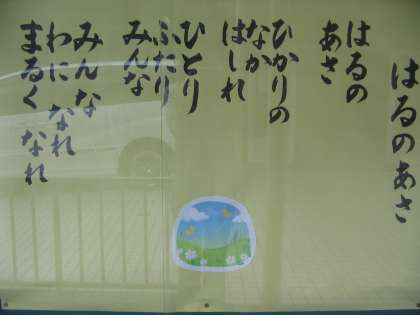 はるのあさ
はるの
あさ
ひかりの
なか
はしれ
ひとり
ふたり
みんな
みんな
わに なれ
まるく なれ